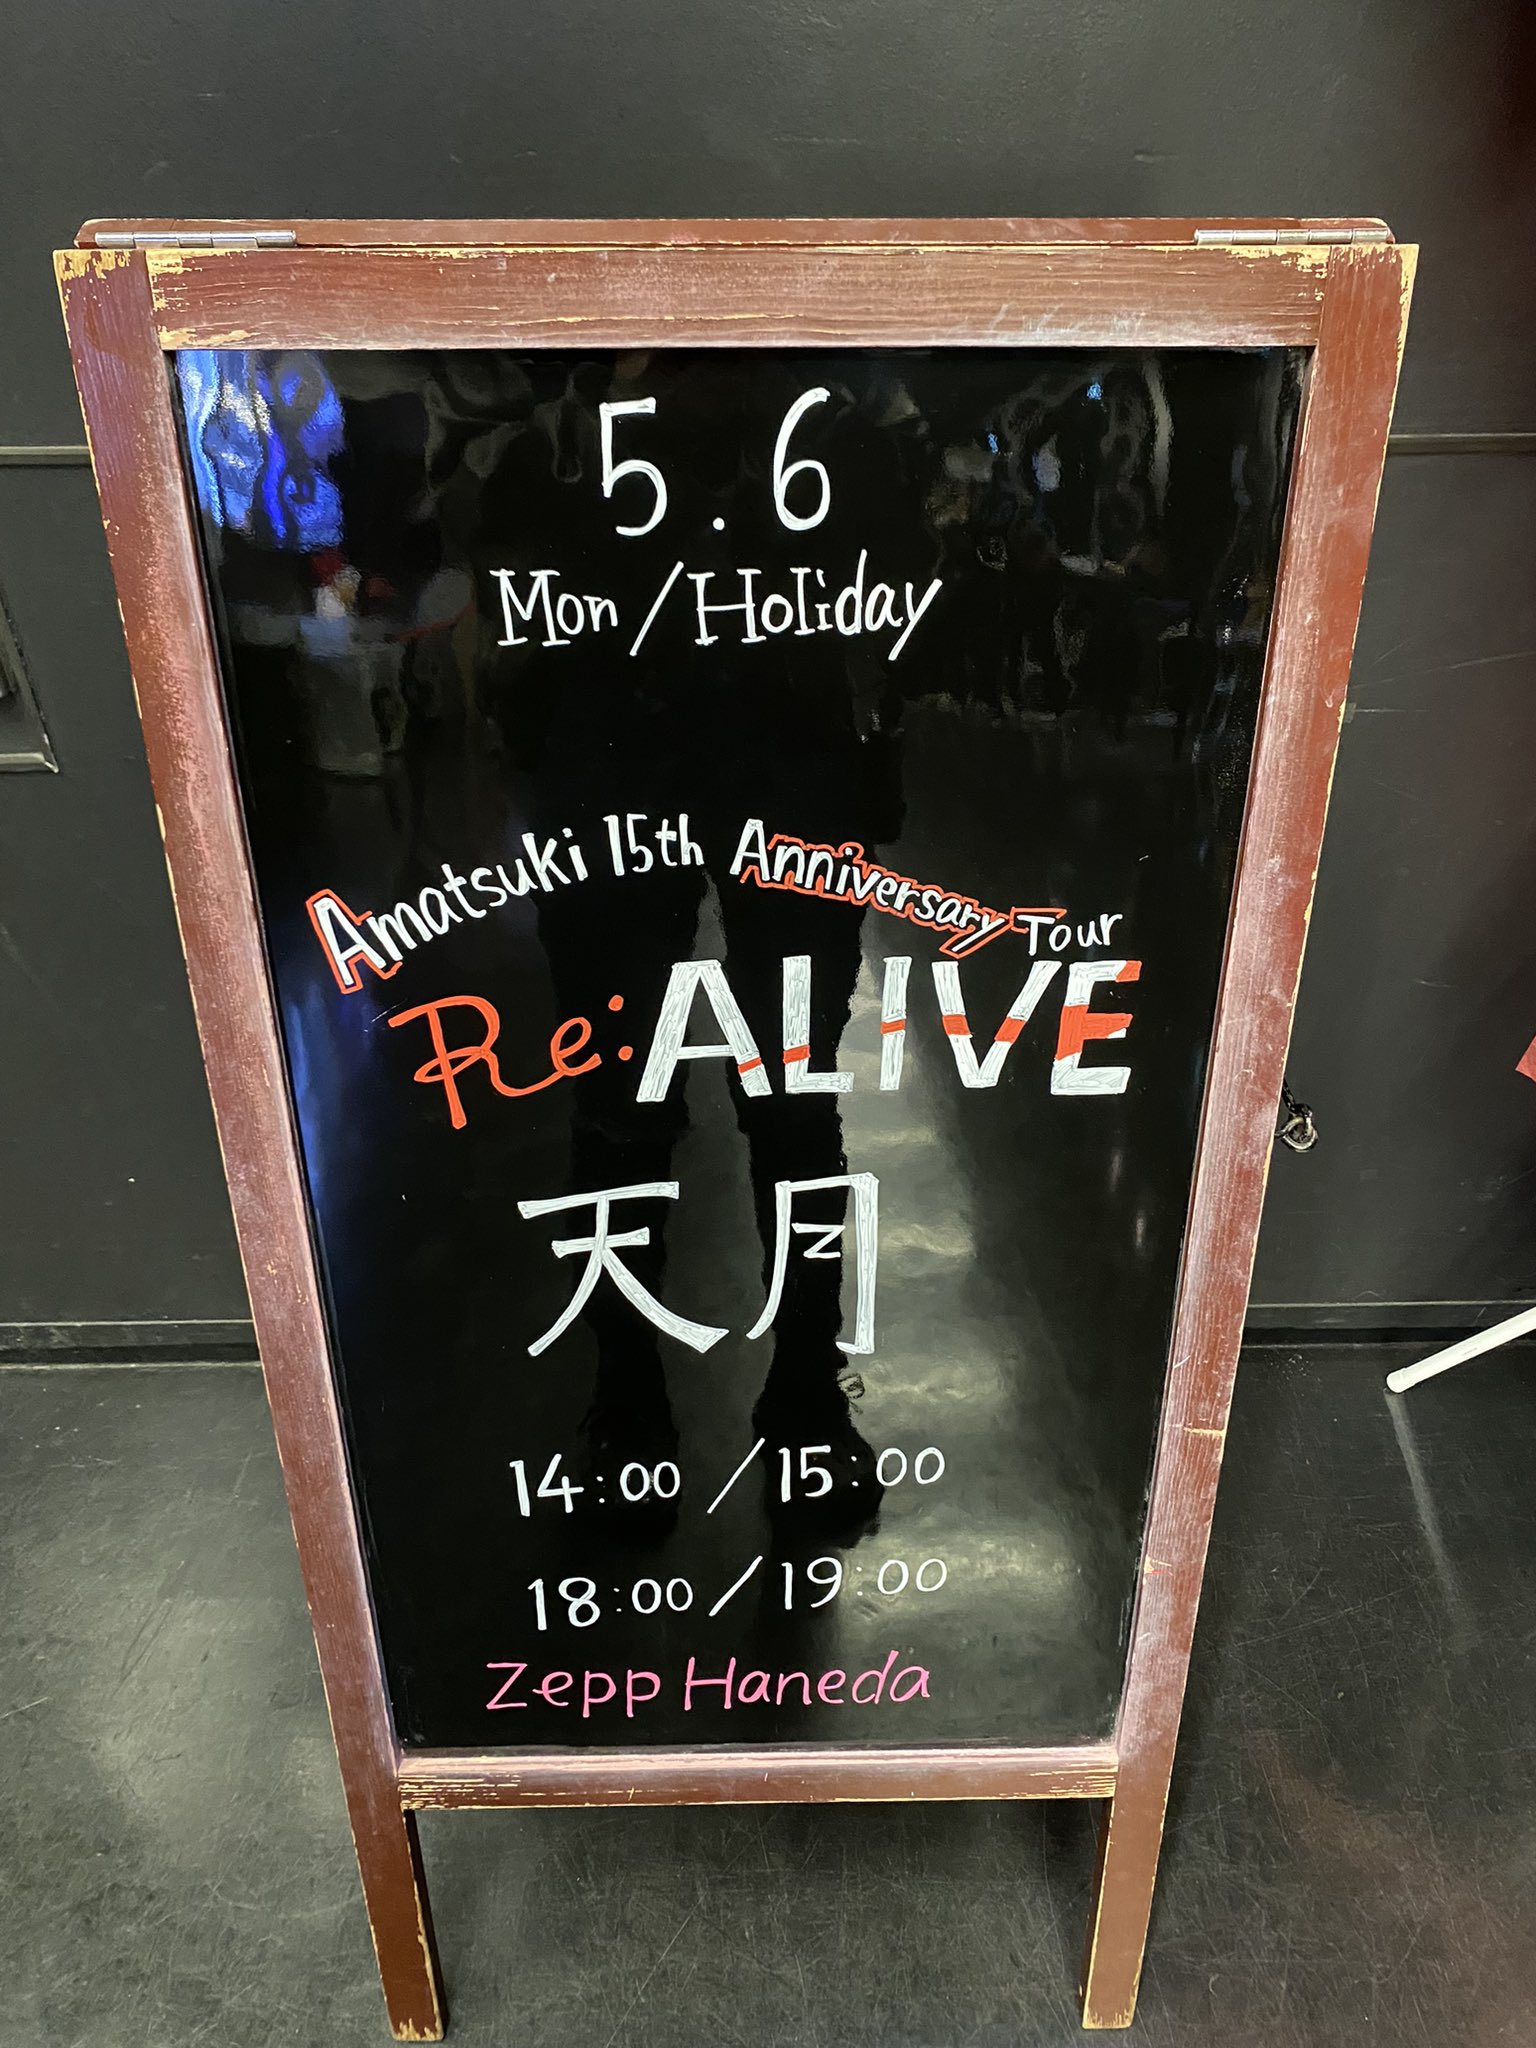 5.6
Mon/Holiday
Amatsuki 15th Anniversary Tour
Re:ALIVE
天月
14:00/15:00
18:00/19:00
Zepp Haneda